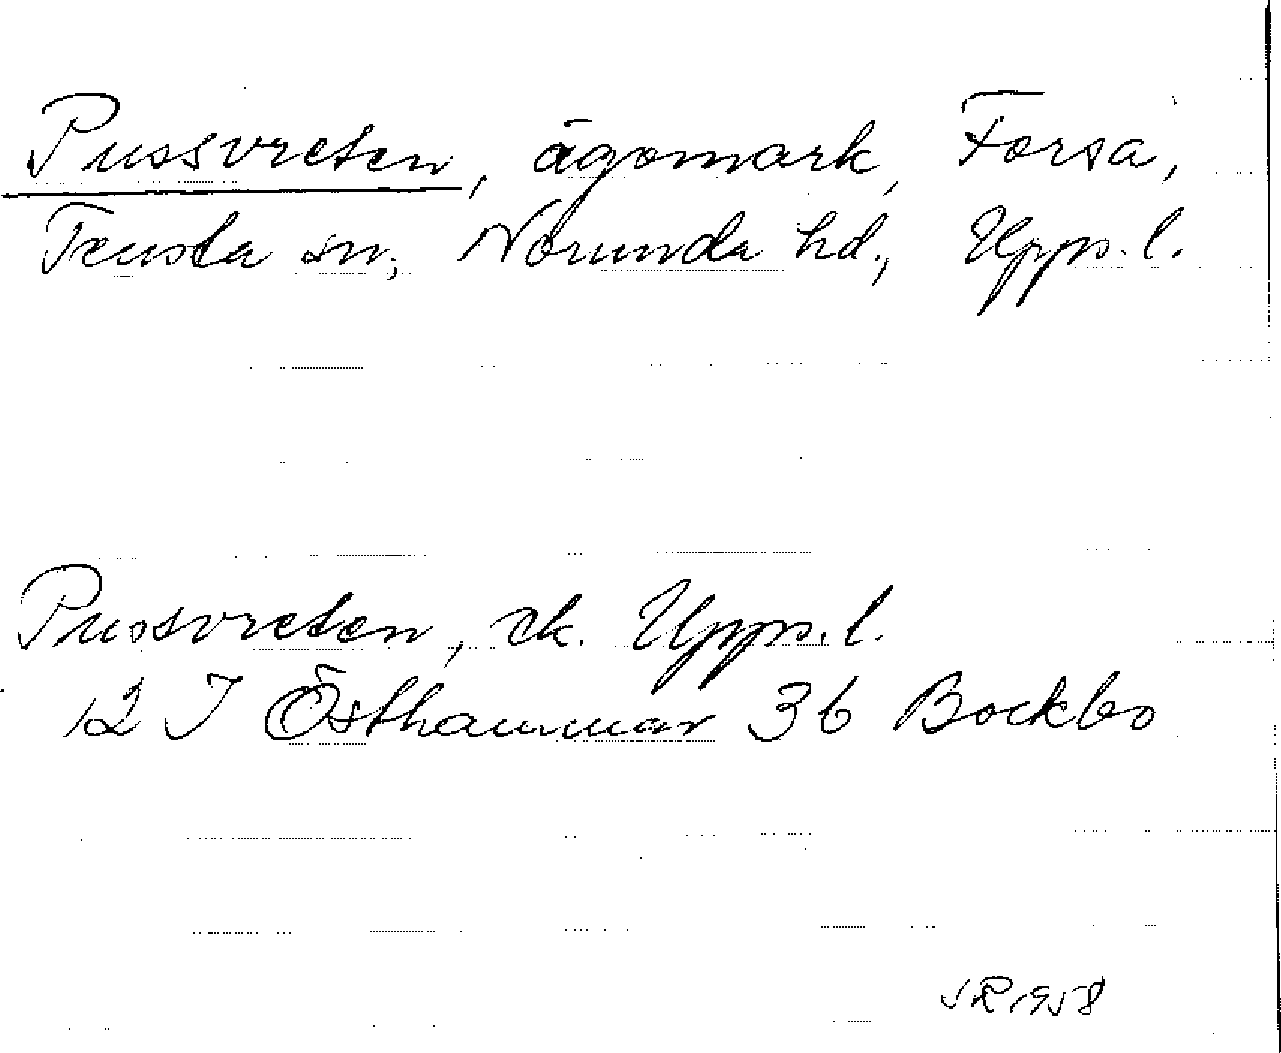 Pussvreten, ägomark, Forsa,
Tensta sn, Norunda hd., Upps. l.
Pussvreten, ek. Upps. l.
12 I Östhammar 3 b Bockbo
1958